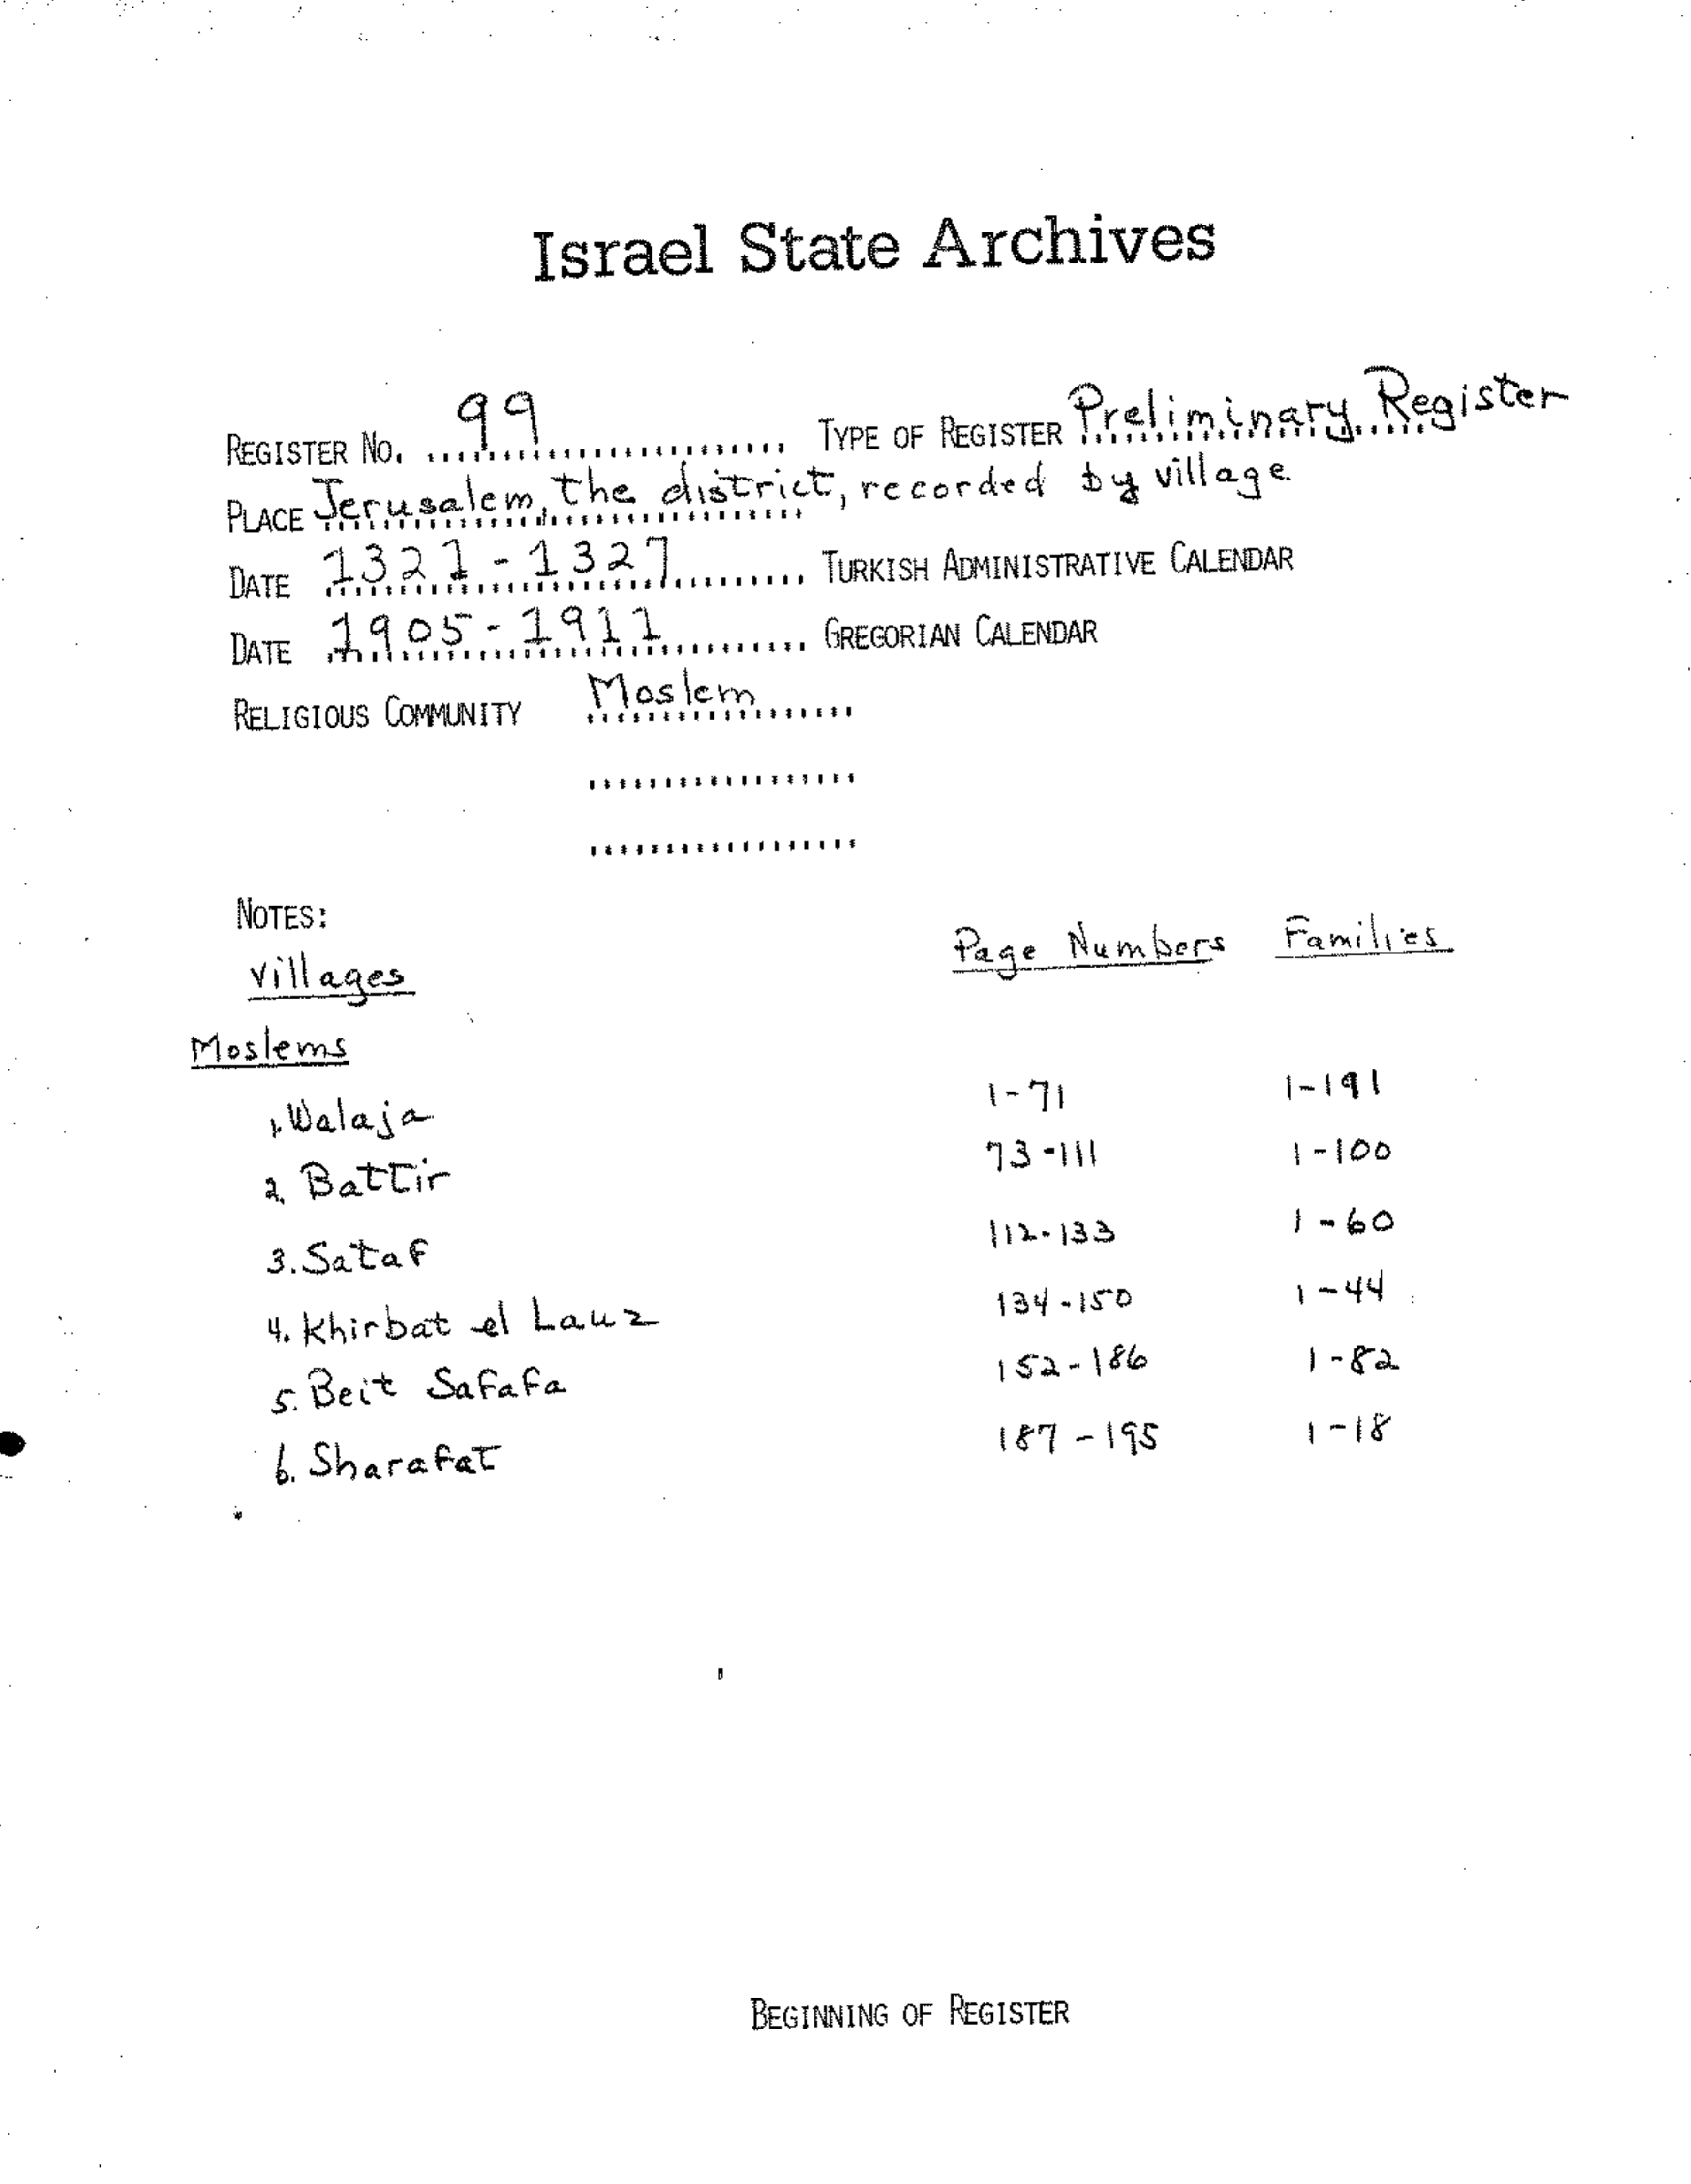 Israel State Archives
REGISTER No. 99 TYPE OF REGISTER Preliminary Register
PLACE Jerusalem, the district, recorded by village
DATE 1321-1327 TURKISH ADMINISTRATIVE CALENDAR
DATE 1905-1911 GREGORIAN CALENDAR
RELIGIOUS COMMUNITY Moslem
NOTES:
Villages Page Numbers Families
Moslems
1. Walaja 1-71 1-191
2. Battir 73-111 1-100
3. Sataf 112-133 1-60
4. Khirbat el Lauz 134-150 1-44
5. Beit Safafa 152-186 1-82
6. Sharafat 187-195 1-18
BEGINNING OF REGISTER